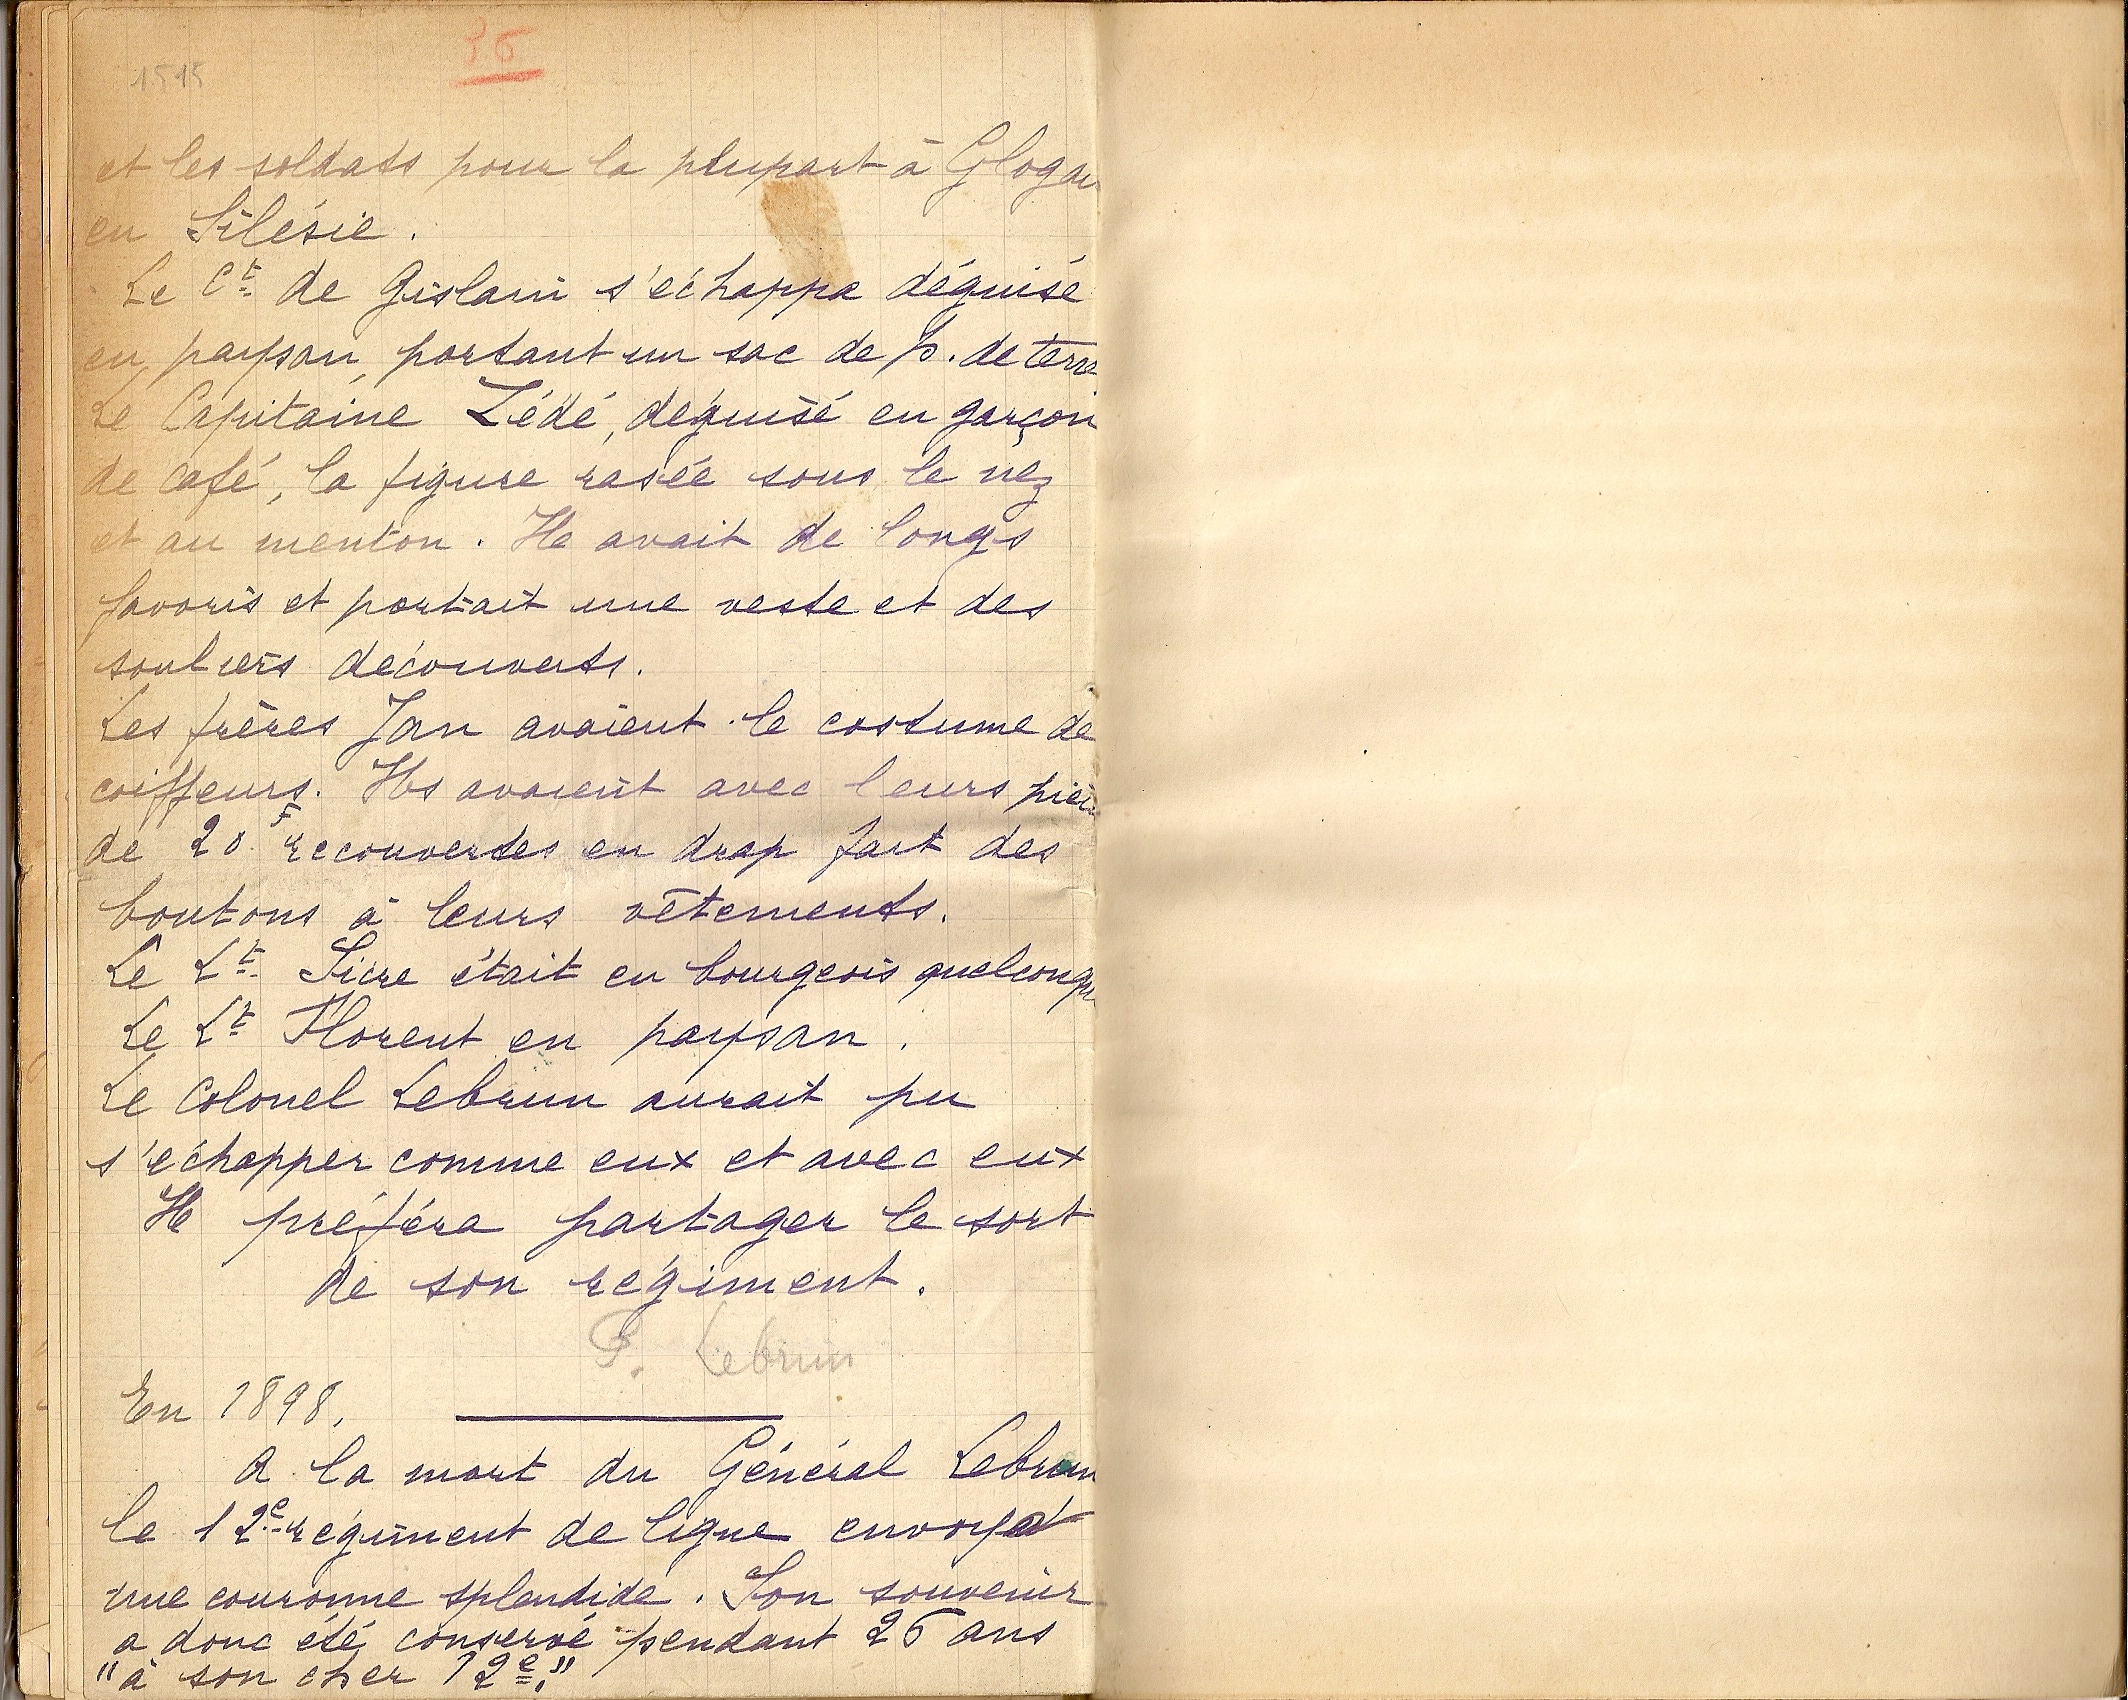 36
1515
et les soldats pour la plupart à Glogau
en Silésie.
Le Ct de Gislain s'échappa déguisé
en paysan, portant un sac de p. de terre
Le Capitaine Zédé, déguisé en garçon
de café, la figure rasée sous le nez
et au menton. Il avait de longs
favoris et portait une veste et des
souliers découverts.
Les frères Jan avaient le costume de
coiffeurs. Ils avaient avec leurs
de 20 F recouvertes en drap fait des
boutons à leurs vêtements.
Le Lt Sicre était en bourgeois quelconque
Le Lt Florent en paysan.
Le Colonel Lebrun aurait pu
s'échapper comme eux et avec eux
Il préféra partager le sort
de son régiment.
P. Lebrun
En 1898.
A la mort du Général Lebrun
le 12e régiment de ligne envoya
une couronne splendide. Son souvenir
a donc été conservé pendant 26 ans
"à son cher 12e."